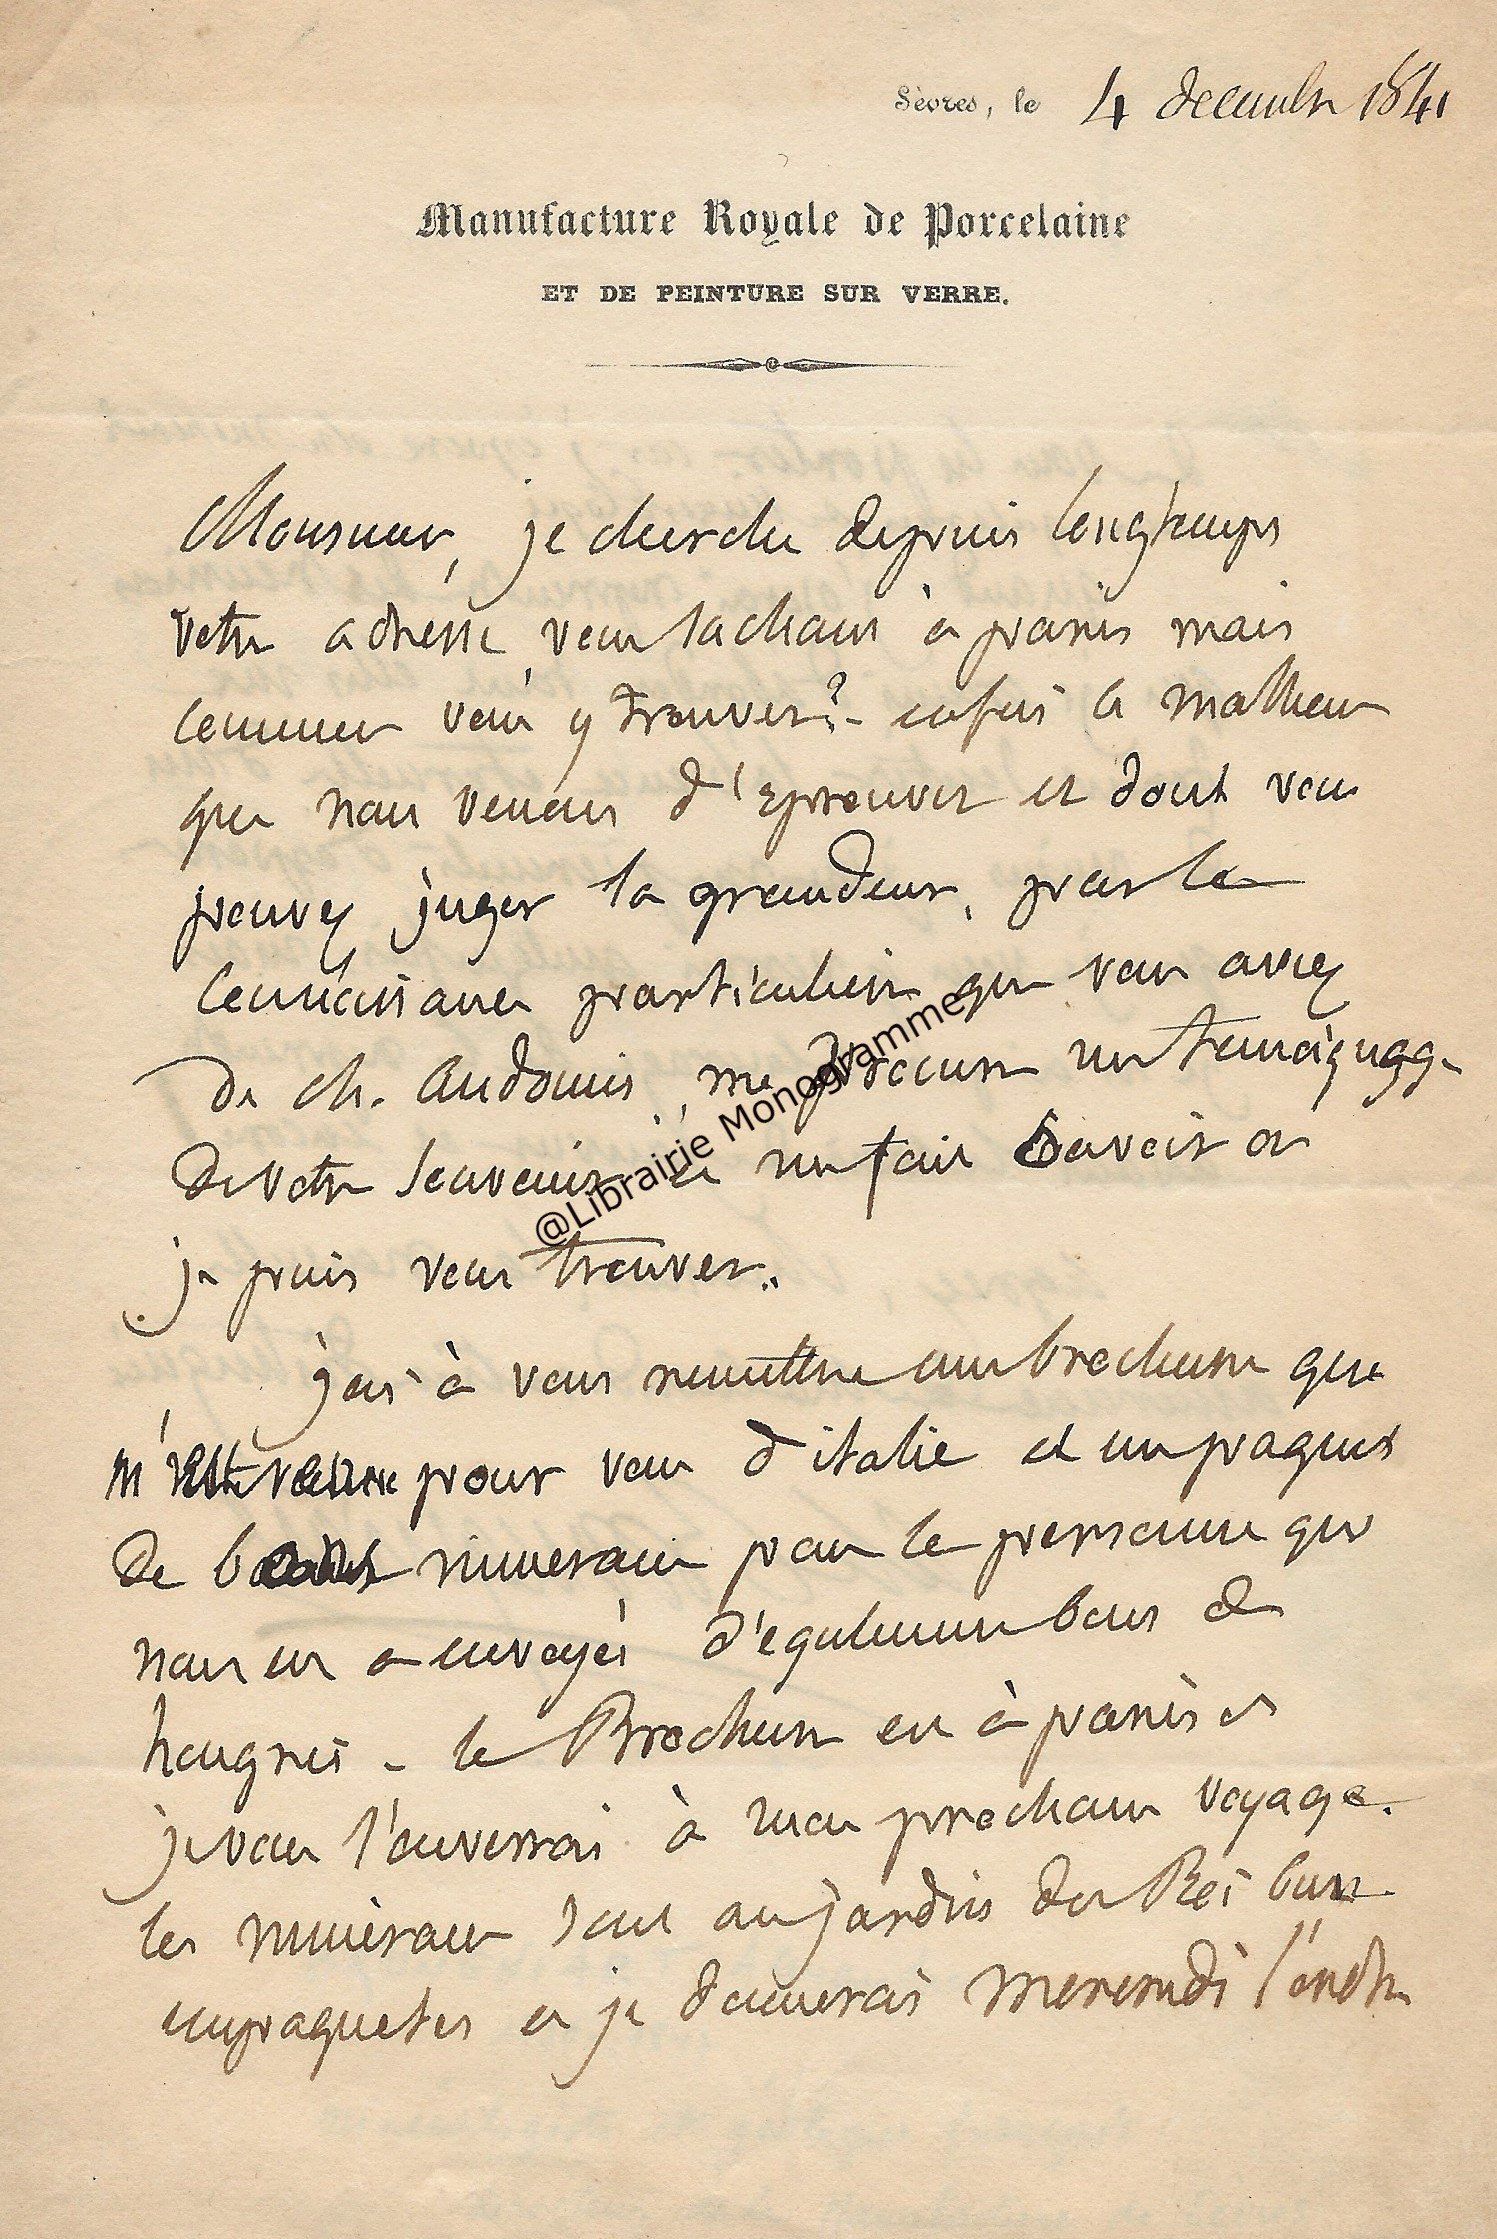 Sèvres, le 4 decembre 1841
Manufacture Royale de Porcelaine
ET DE PEINTURE SUR VERRE.
Monsieur, je cherche depuis longtemps
votre adresse vous sachant à paris mais
comment vous y trouver? - enfin le malheur
que nous venons d'eprouver et dont vous
pouvez juger la grandeur, par la
connaissance particuliere que vous aviez
de ch. audouin, me procure un temoignage
de votre souvenir et me fait savoir où
je puis vous trouver.
j'ai à vous remettre une brochure que
m' pour vous d'italie et un paquet
de mineraux pour la personne qui
nous en a envoyés d'également bons de
hongrie - la Brochure est à paris et
je vous l'enverrai à mon prochain voyage.
les mineraux sont au jardin du Roi bien
empaquetés et je donnerai mercredi l'ordre
@Librairie Monogramme